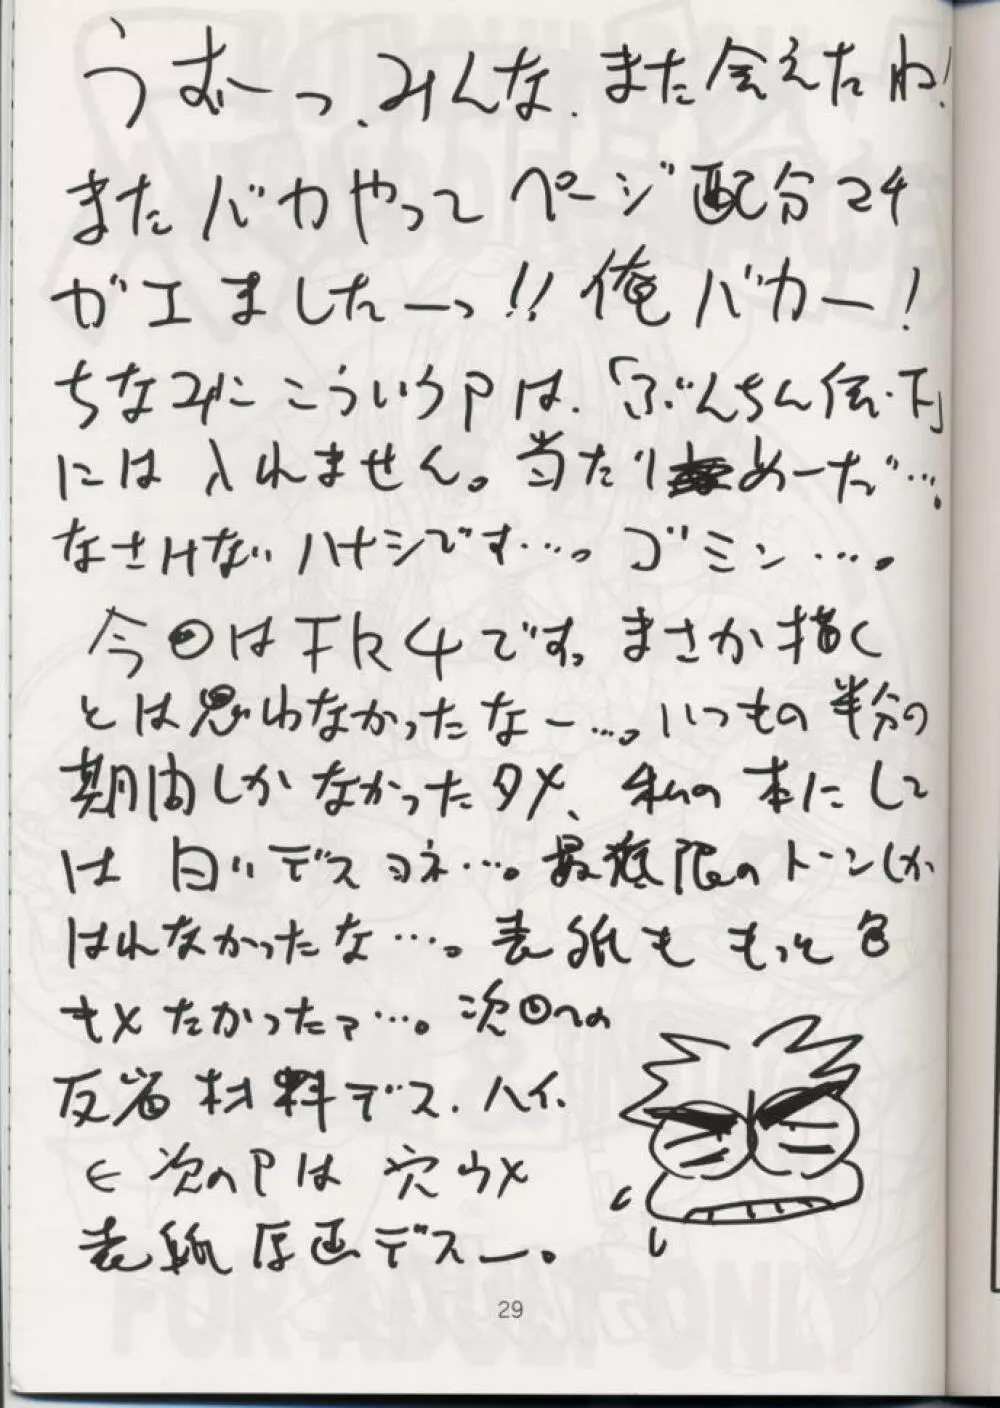 うむーっ、みんな、また会えたね!
またバカやってページ配分マチ
ガエましたーっ!!俺バカー!
ちなみにこういうPは、「ぶんちん伝・下」
には入れません。当たりめーだ…。
なさけないハナシです…。ゴミン…。
今回はFR4です。まさか描く
とは思わなかったなー…。いつもの半分の
期間しかなかったタメ、私の本にして
は白いデスヨネ…。最低限のトーンしか
はれなかったな…。表紙ももっと色
キメたかったァ…。次回への
反省材料デス、ハイ、
← 次のPは穴ウメ
表紙原画デスー。
29